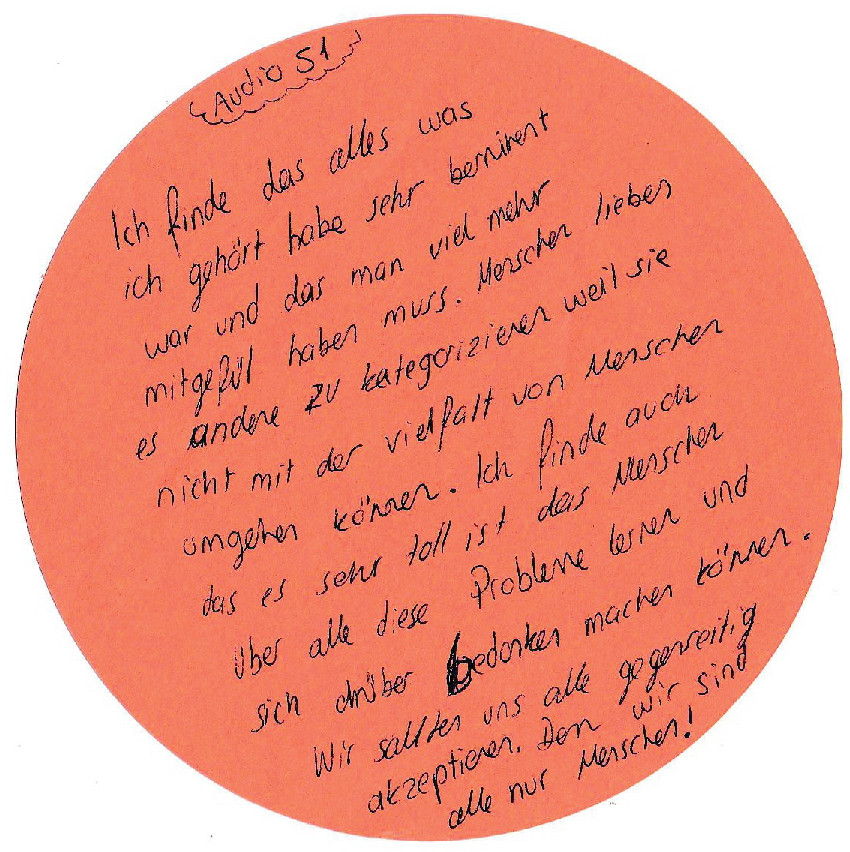 Audio S1
Ich finde das alles was
ich gehört habe sehr berürent
war und das man viel mehr
mitgefül haben muss. Menschen lieben
es andere zu kategorizieren weil sie
nicht mit der vielfalt von Menschen
umgehen können. Ich finde auch
das es sehr toll ist das Menschen
über alle diese Probleme lernen und
sich drüber bedenken machen können.
Wir sollten uns alle gegenseitig
akzeptieren. Denn wir sind
alle nur Menschen!